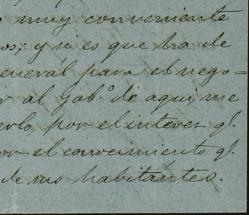 muy conveniente
os; y si es que ha de
eneral para el nego-
r al Gob.º de aqui, me
erlo por el interes q.
or el conocimiento q.
de sus habitantes.